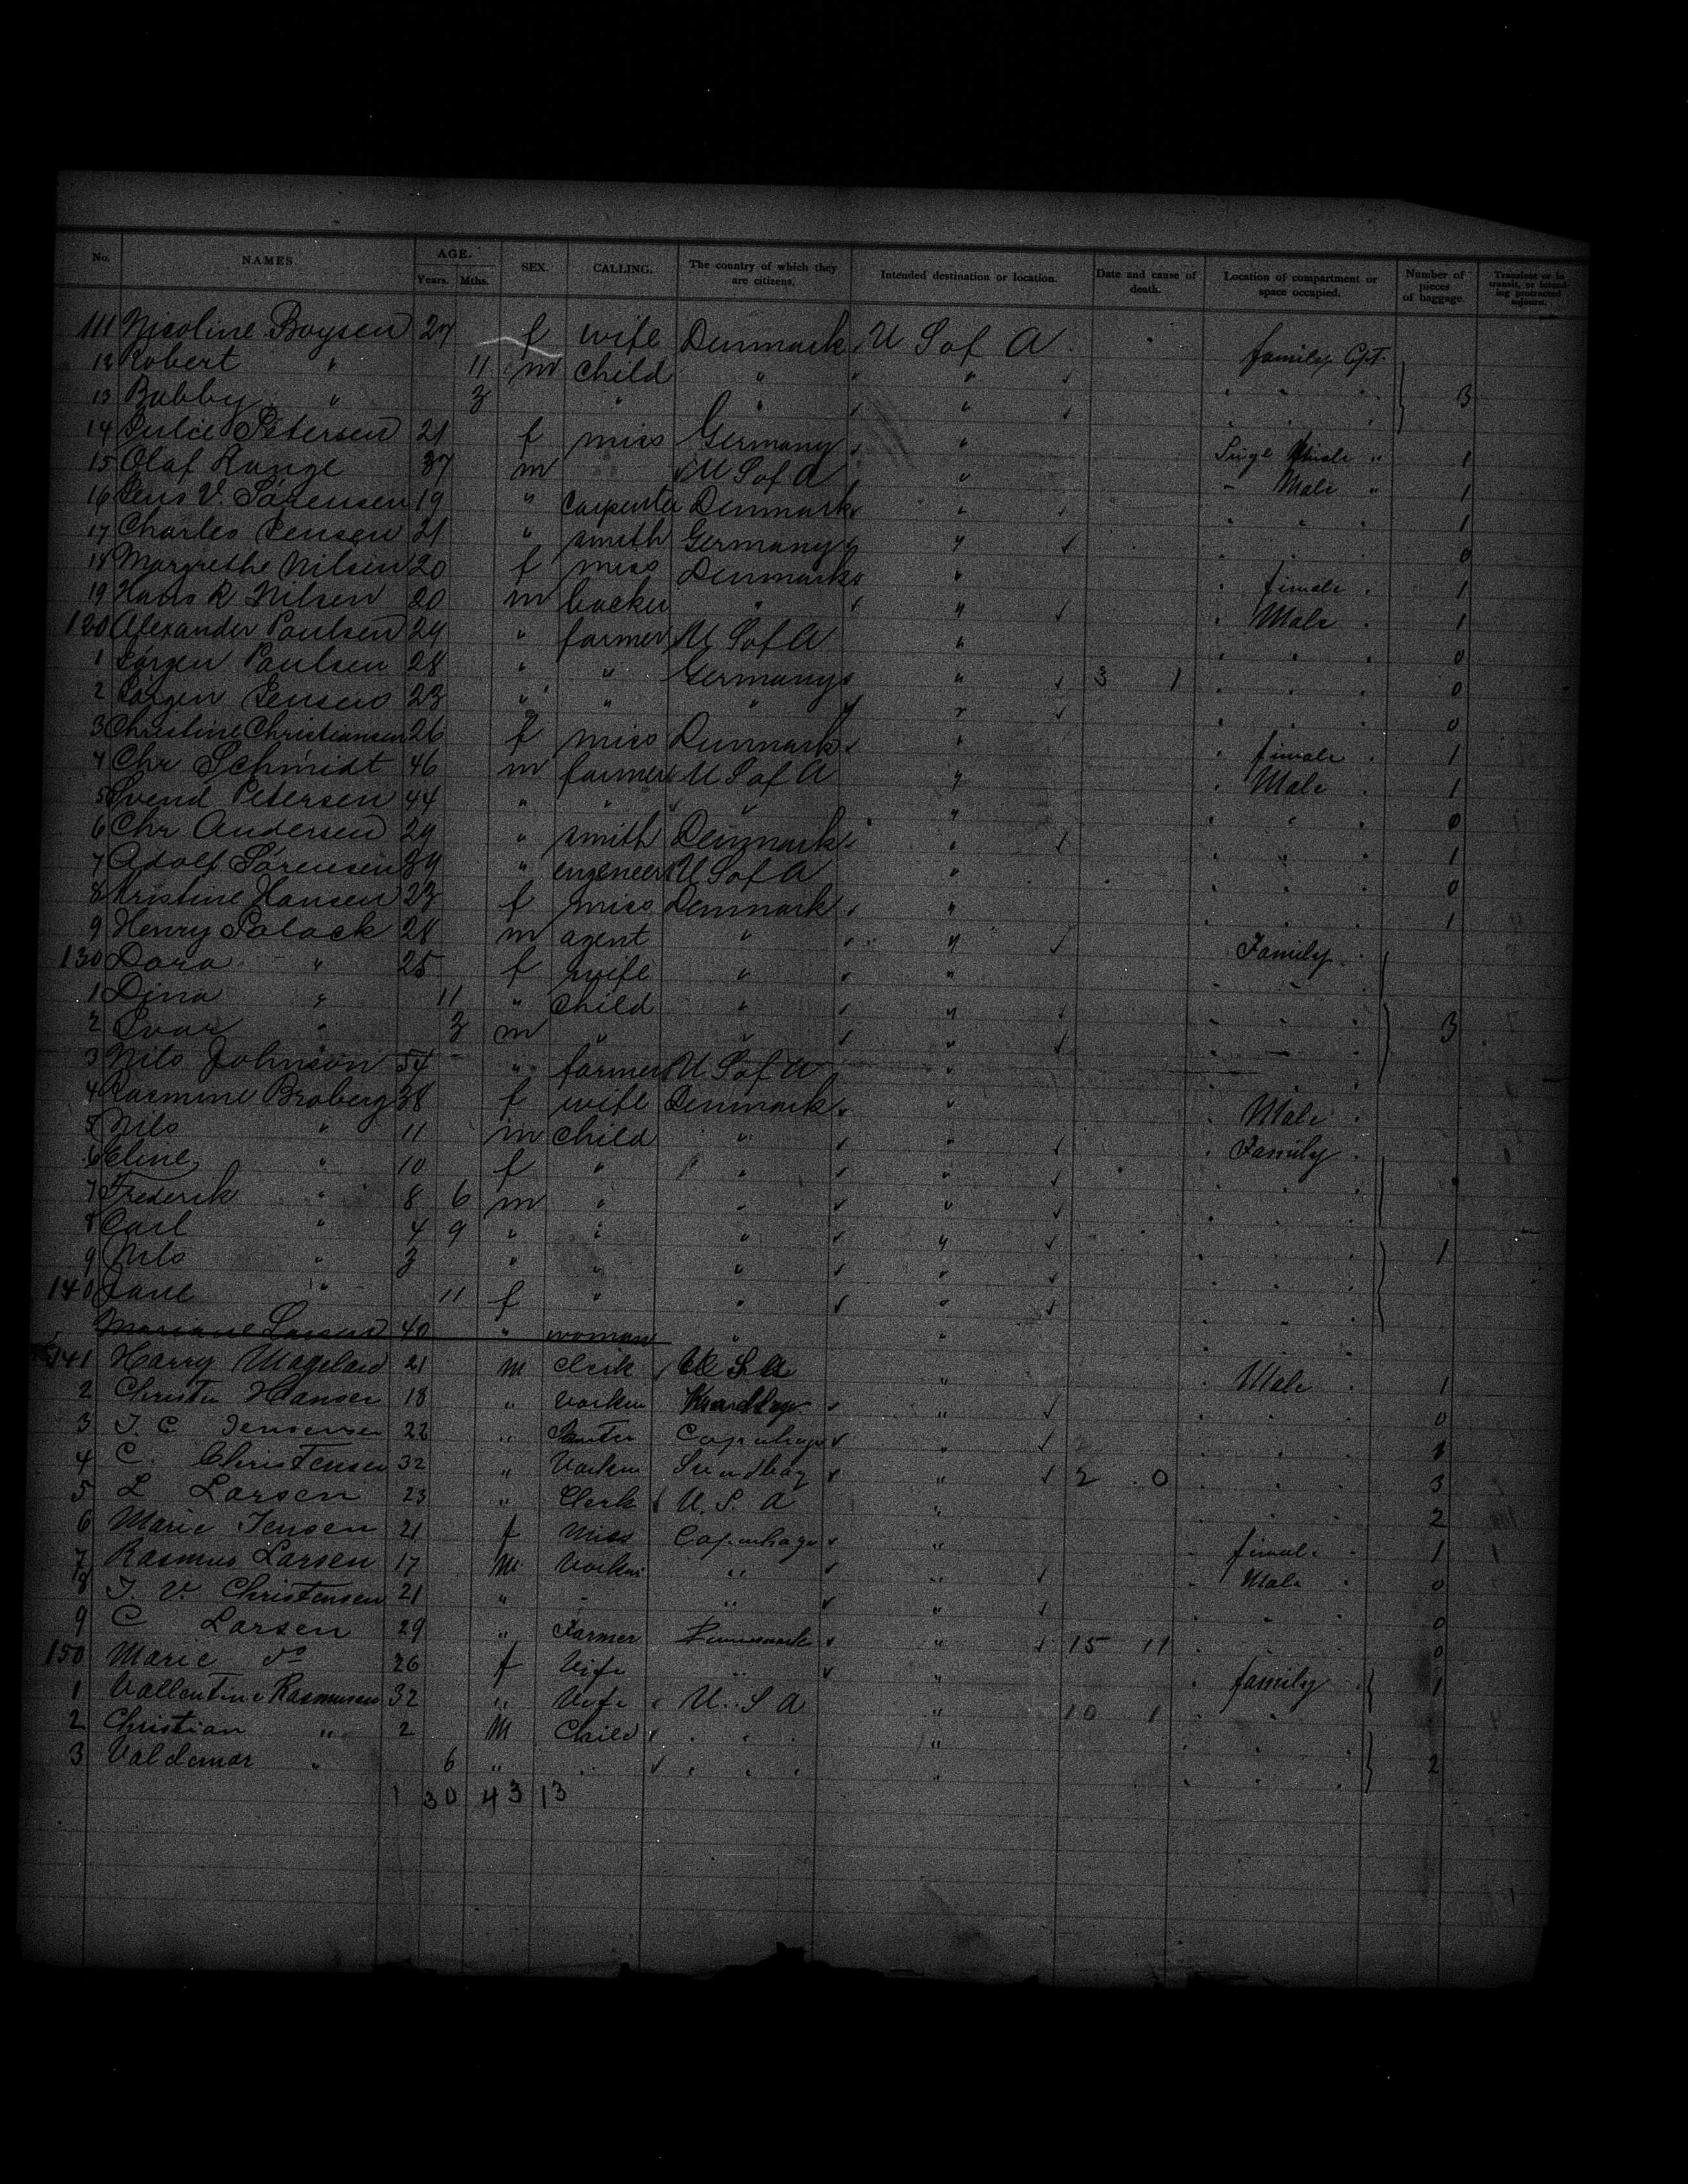 No. NAMES. AGE. Years. Mths. SEX. CALLING. The country of which they are citizens. Intended destination or location. Date and cause of death. Location of compartment or space occupied. Number of pieces of baggage. Transient or in transit, or intending protracted sojourn.
111 Nicoline Boysen 27 f wife Denmark U S of A family Cpt.
12 Robert " 11 m child " "
13 Bubby " 3 " " " 3
14 Petersen 21 f miss Germany " " 1
15 Olaf Runge 37 m U S of A " - Male " 1
16 Jens V. Sørensen 19 " carpenter Denmark " 1
17 Charles Jensen 21 " smith Germany " 0
18 Margrethe Nilsen 20 f miss Denmark " female 1
19 Hans R Nilsen 20 m " " Male 1
120 Alexander Paulsen 24 " farmer U S of A " 0
1 Jörgen Paulsen 28 " " Germany " 3 1 0
2 Jörgen Jensen 23 " " " " 0
3 Christine Christiansen 26 f miss Denmark " female 1
4 Chr Schmidt 46 m farmer U S of A " Male 1
5 Svend Petersen 44 " " " " 0
6 Chr Andersen 29 " smith Denmark " 1
7 Adolf Sørensen 39 " engeneer U S of A " 0
8 Kristine Hansen 23 f miss Denmark " 1
9 Henry Polack 28 m agent " " Family
130 Dora " 25 f wife " "
1 Dina " 11 " child " "
2 Ivar " 3 m " " " 3
3 Nils Johnson 54 " farmer U S of A "
4 Rasmine Broberg 38 f wife Denmark " Male
5 Nils " 11 m child " " Family
6 Eline " 10 f " " "
7 Frederik " 8 6 m " " "
8 Carl " 4 9 " " " " 1
9 Nils " 3 " " " "
140 Jane " 11 f " " "
Mariane Larsen 40 " woman " "
141 Harry 21 m U S A " Male 1
2 Hansen 18 " " 0
3 22 " "
4 C. Christensen 32 " " 2 0 3
5 L Larsen 23 " Clerk U. S. A " 2
6 Marie Jensen 21 f Miss " female 1
7 Rasmus Larsen 17 m " " Male 0
8 J. V. Christensen 21 " " " 0
9 C Larsen 29 " Farmer " 15 11 0
150 Marie do 26 f Wife " " family 1
1 Vallentine Rasmusen 32 " Wife U. S A " 10 1
2 Christian " 2 M Child "
3 Valdemar " 6 " " 2
1 30 43 13